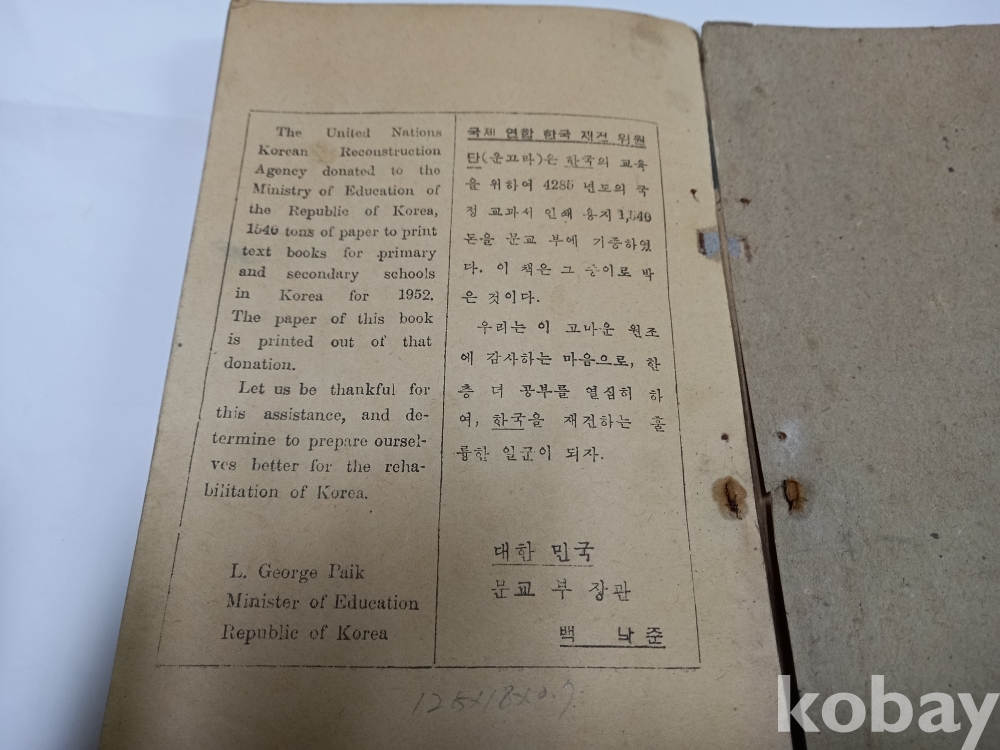 The United Nations
Korean Reconstruction
Agency donated to the
Ministry of Education of
the Republic of Korea,
1540 tons of paper to print
text books for primary
and secondary schools
in Korea for 1952.
The paper of this book
is printed out of that
donation.
Let us be thankful for
this assistance, and de-
termine to prepare oursel-
ves better for the reha-
bilitation of Korea.
L. George Paik
Minister of Education
Republic of Korea
국제 연합 한국 재건 위원
단(운끄라)은 한국의 교육
을 위하여 4285 년도의 국
정 교과서 인쇄 용지 1,540
톤을 문교 부에 기증하였
다. 이 책은 그 종이로 박
은 것이다.
우리는 이 고마운 원조
에 감사하는 마음으로, 한
층 더 공부를 열심히 하
여, 한국을 재건하는 훌
륭한 일군이 되자.
대한 민국
문교 부 장관
백 낙준
kobay